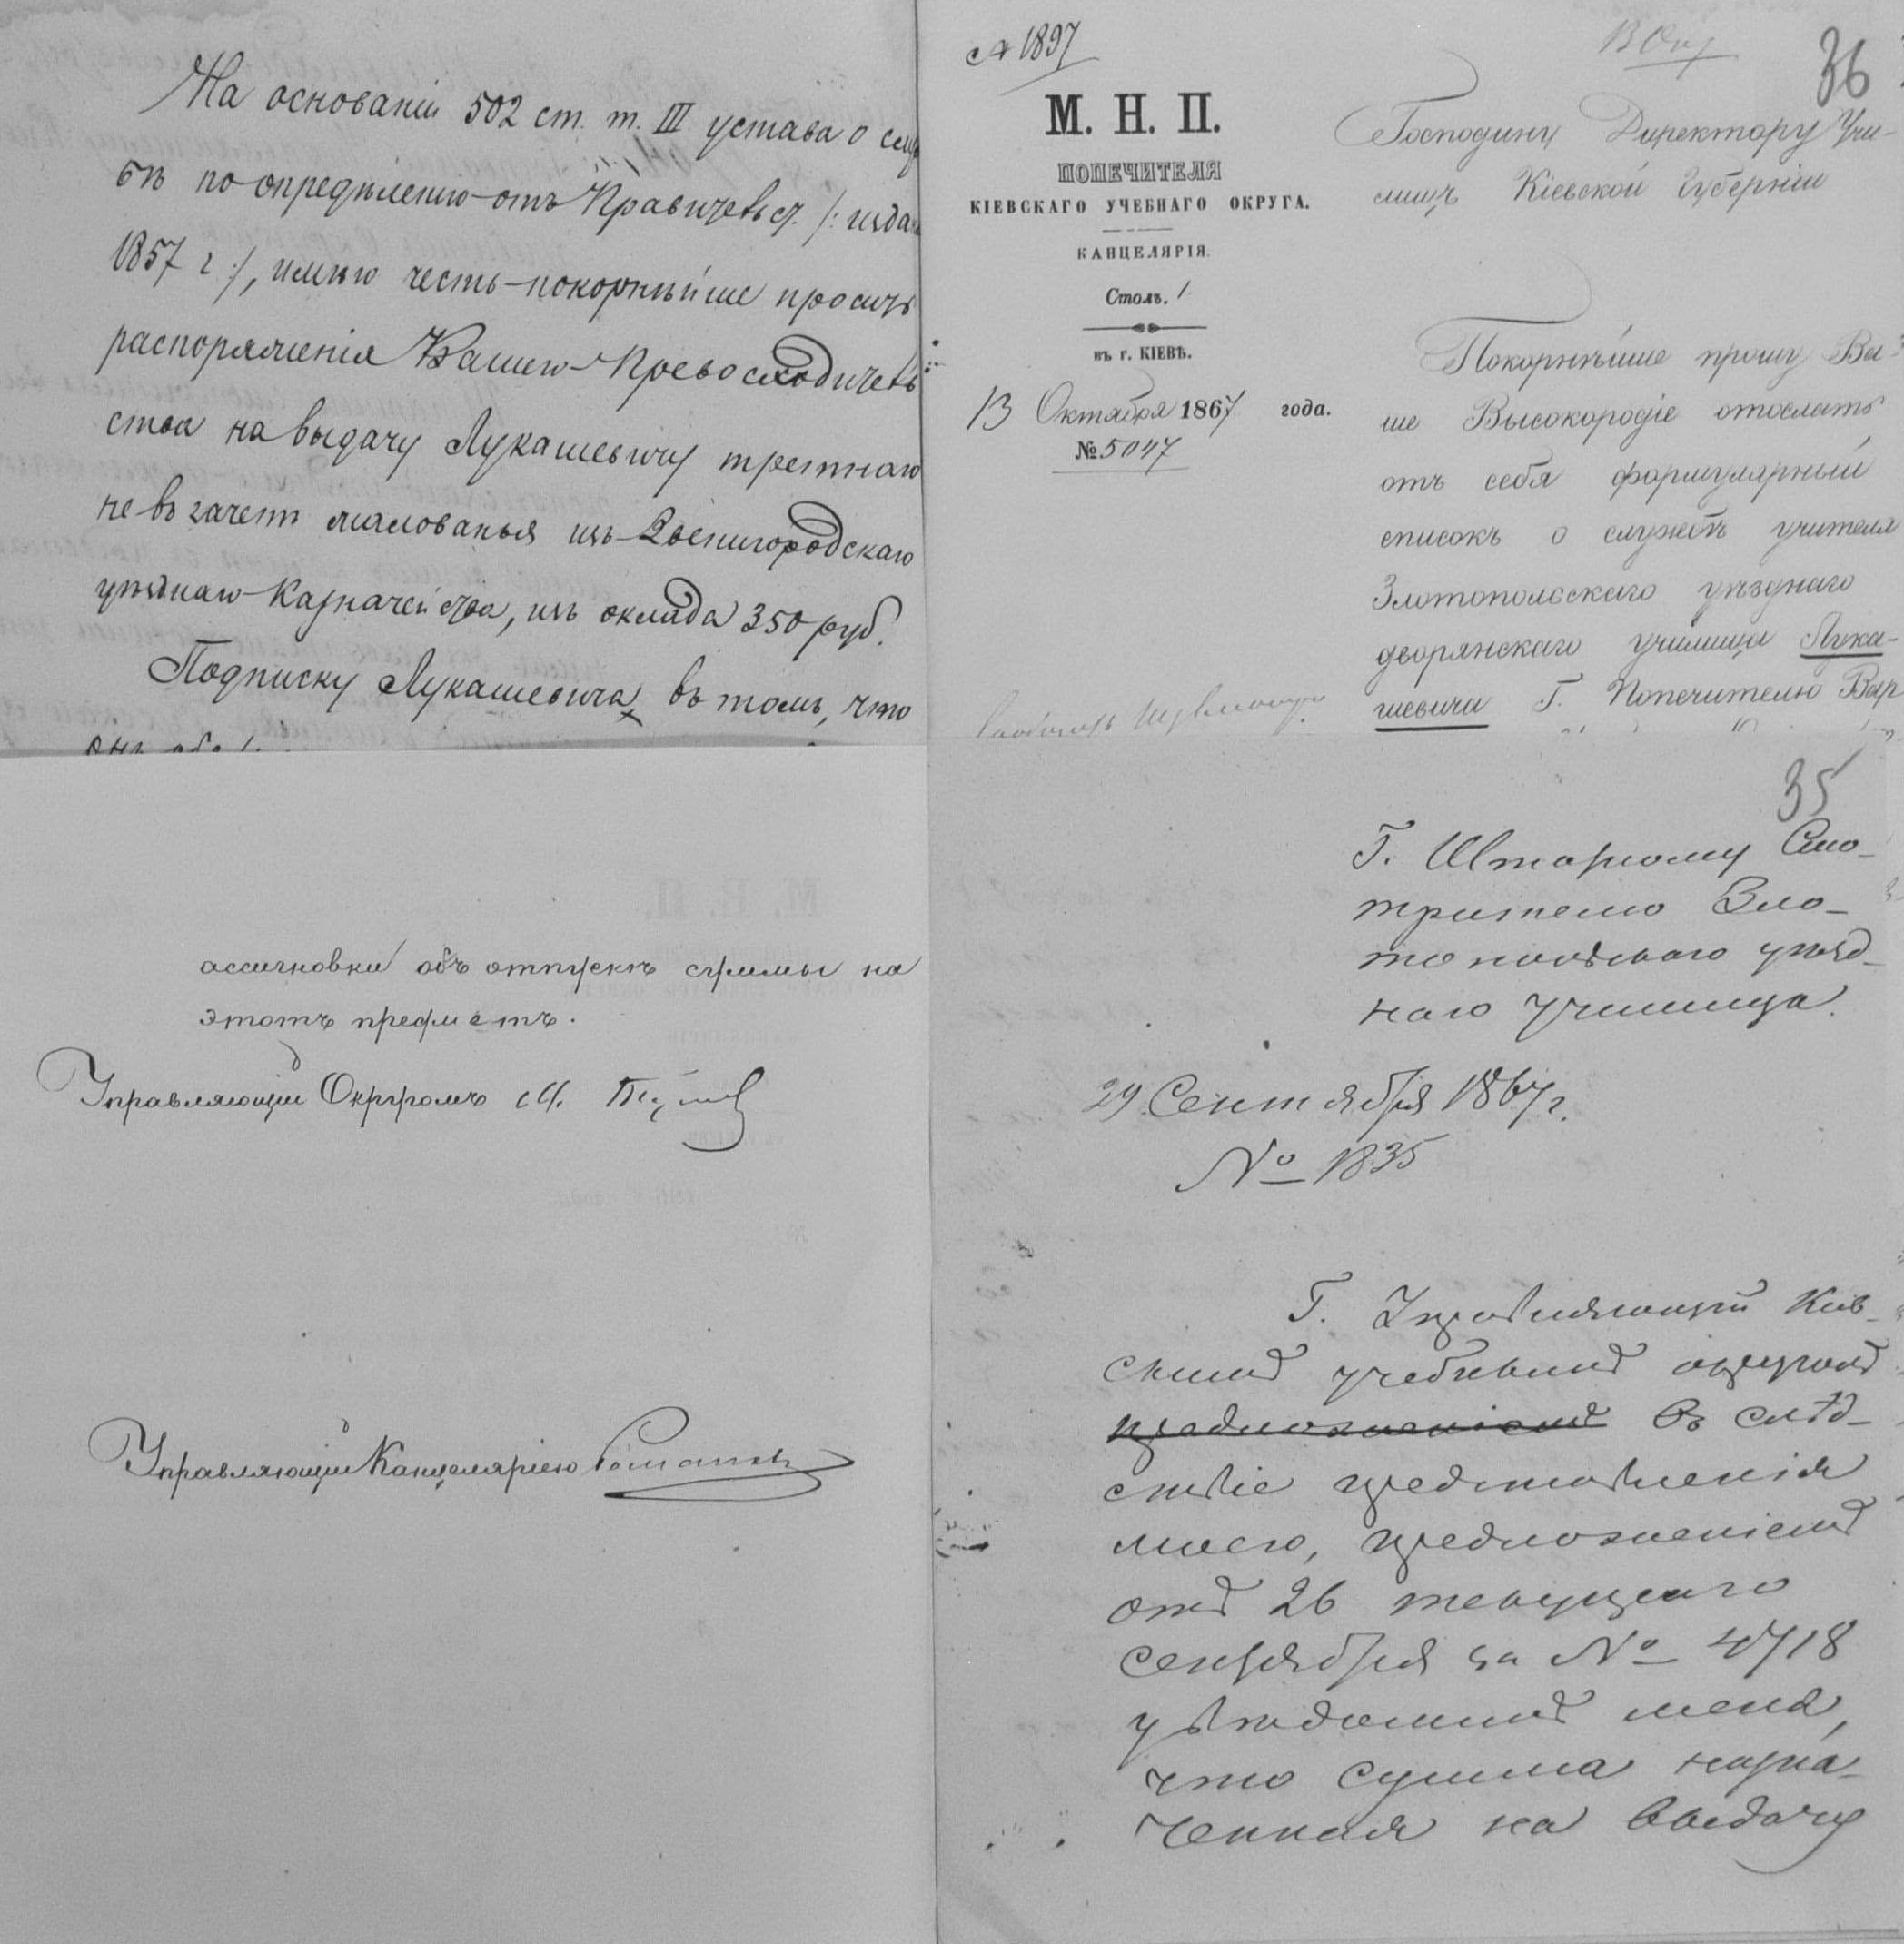 На основаніи 502 ст. т. III устава о служ
бѣ по опредѣленію отъ Правительст. /: издан
1857 г :/, имѣю честь покорнѣйше просить
распоряженія Вашего Превосходитель
ства на выдачу Лукашевичу третнаго
не въ зачетъ жалованья изъ Звенигородскаго
уѣзднаго Казначейства, изъ оклада 350 руб.
Подписку Лукашевича въ томъ, что
А 1897
М. Н. П.
ПОПЕЧИТЕЛЯ
КІЕВСКАГО УЧЕБНАГО ОКРУГА.
КАНЦЕЛЯРІЯ.
Столъ. 1
въ г. КІЕВѢ.
13 Октября 1867 года.
№ 5047
13 Окт
36
Господину Директору Учи-
лищъ Кіевской Губерніи
Покорнѣйше прошу Ва-
ше Высокородіе отослать
отъ себя формулярный
списокъ о службѣ учителя
Златопольскаго уѣзднаго
дворянскаго училища Лука-
шевича Г. Попечителю Вар
ассигновки объ отпускѣ суммы на
этотъ предметъ.
Управляющій Округомъ М.
Управляющій Канцеляріею
35
Г. Штатному Смо-
трителю Зло-
топольскаго уѣзд-
наго училища.
29 Сентября 1867 г.
№ 1835
Г. Управляющій Кіев-
скимъ учебнымъ округомъ
предложеніемъ въ слѣд-
ствіе представленія
моего, предложеніемъ
отъ 26 текущаго
сентября за № 4718
увѣдомилъ меня,
что сумма назна-
ченная на выдачу